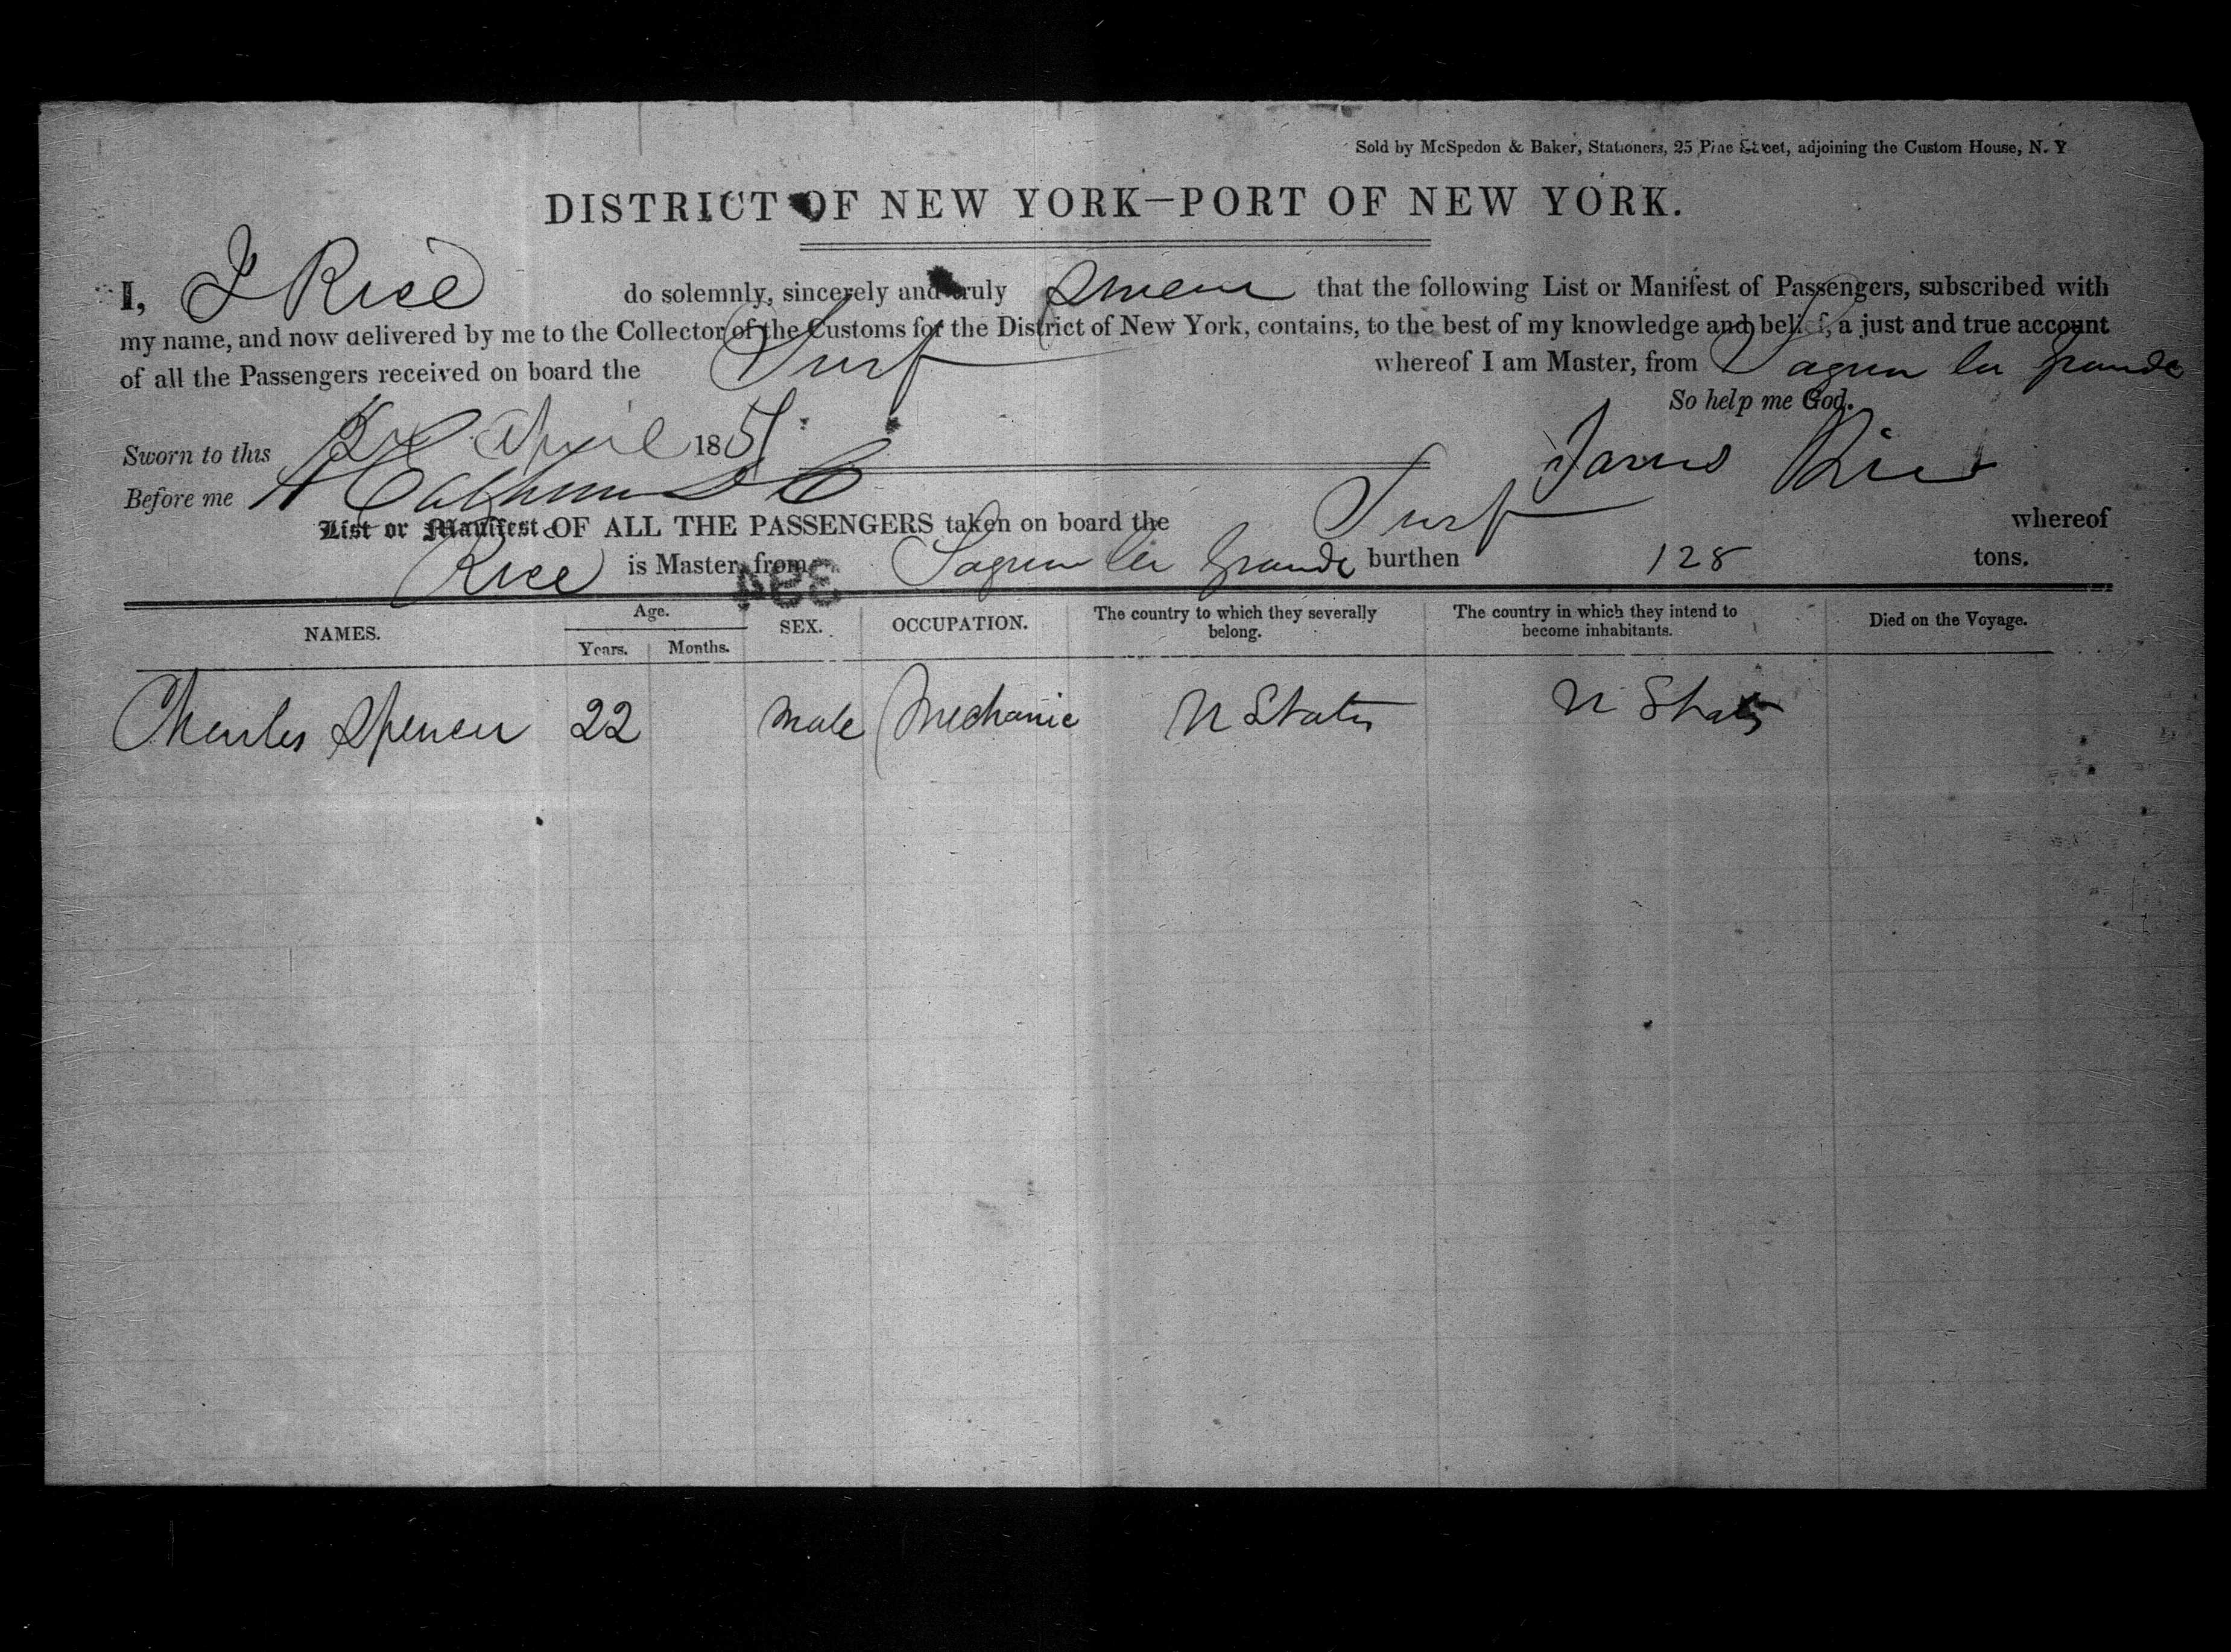 Sold by McSpedon & Baker, Stationers, 25 Pine Street, adjoining the Custom House, N. Y
DISTRICT OF NEW YORK—PORT OF NEW YORK.
I, J Rice do solemnly, sincerely and truly swear that the following List or Manifest of Passengers, subscribed with
my name, and now delivered by me to the Collector of the Customs for the District of New York, contains, to the best of my knowledge and belief, a just and true account
of all the Passengers received on board the Surf whereof I am Master, from Sagua la Grande
So help me God.
Sworn to this April 1851
James Rice
Before me A Calhoun D C
List or Manifest OF ALL THE PASSENGERS taken on board the Surf whereof
Rice is Master, from Sagua la Grande burthen 128 tons.
394
NAMES. Age. Years. Months. SEX. OCCUPATION. The country to which they severally belong. The country in which they intend to become inhabitants. Died on the Voyage.
Charles Spencer 22 Male Mechanic U States U States